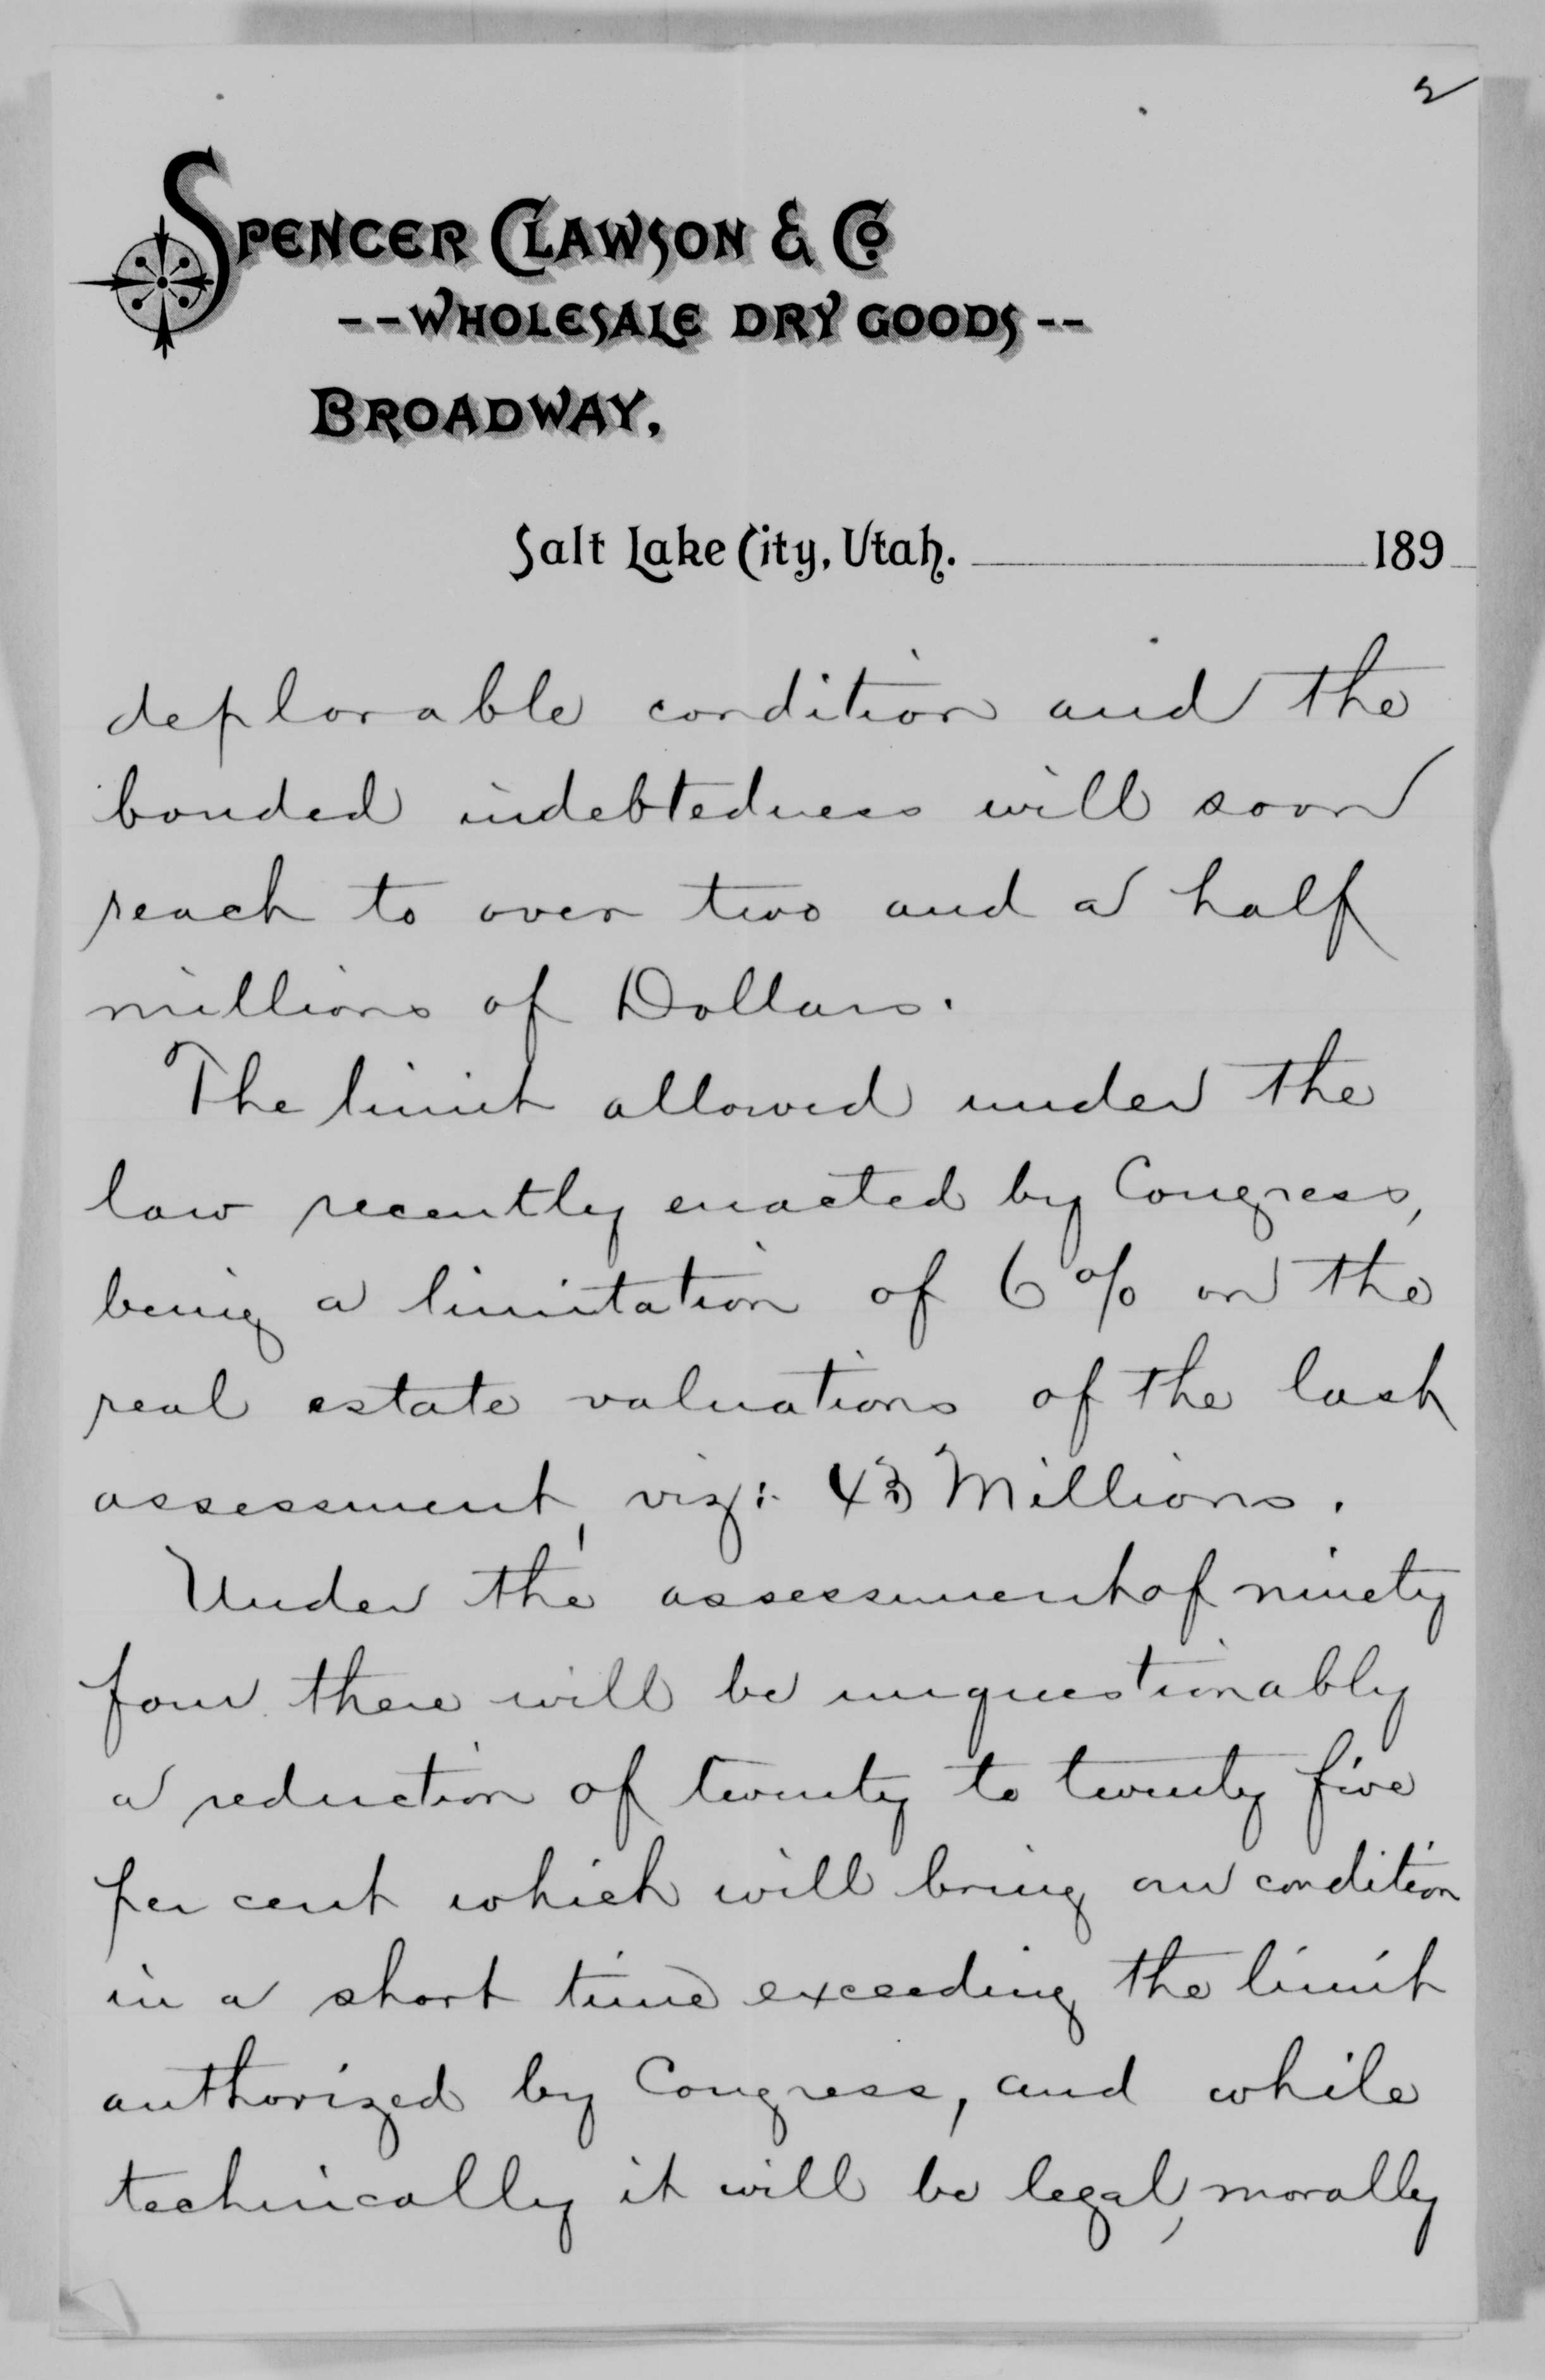 2
SPENCER CLAWSON & CO
--WHOLESALE DRY GOODS--
BROADWAY.
Salt Lake City, Utah. 189
deplorable condition and the
bonded indebtedness will soon
reach to over two and a half
millions of Dollars.
The limit allowed under the
law recently enacted by Congress,
being a limitation of 6% on the
real estate valuations of the last
assessment, viz: 43 Millions.
Under the assessment of ninety
four there will be unquestionably
a reduction of twenty to twenty five
per cent which will bring our condition
in a short time exceeding the limit
authorized by Congress, and while
technically it will be legal, morally